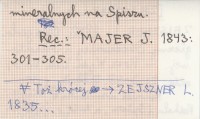 mineralnych na Spiszu.
Rec.: MAJER J. 1843:
301-305.
Toż krócej → ZEJSZNER L.
1835...